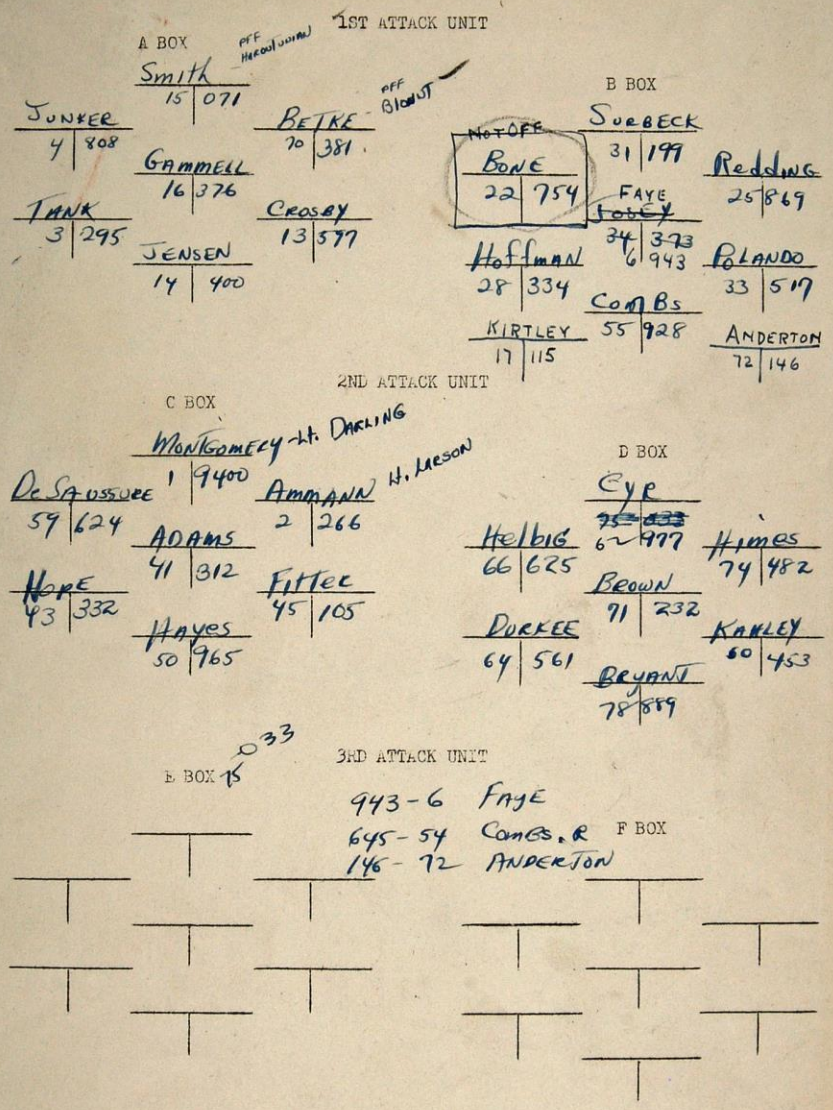 1ST ATTACK UNIT
A BOX
PFF
HAROUTUNIAN
Smith
15 071
JUNKER
4 808
BETKE
70 381
PFF
BIONUT
GAMMELL
16 376
TANK
3 295
CROSBY
13 577
JENSEN
14 400
B BOX
SURBECK
31 199
NOT OFF
BONE
22 754
Redding
25 869
FAYE
34 373
6 943
Hoffman
28 334
POLANDO
33 517
COMBS
55 928
KIRTLEY
17 115
ANDERTON
72 146
2ND ATTACK UNIT
C BOX
MONTGOMERY - Lt. DARLING
1 9400
DeSAUSSURE
59 624
AMMANN Lt. LARSON
2 266
ADAMS
41 312
HOPE
43 332
FITTER
45 105
HAYES
50 965
D BOX
CYR
75 033
62 977
Helbig
66 625
Himes
74 482
BROWN
71 232
DURKEE
64 561
KAHLEY
60 453
BRYANT
78 889
3RD ATTACK UNIT
E BOX 75 - 033
943-6 FAYE
645-54 COMBS. R
146-72 ANDERTON
F BOX